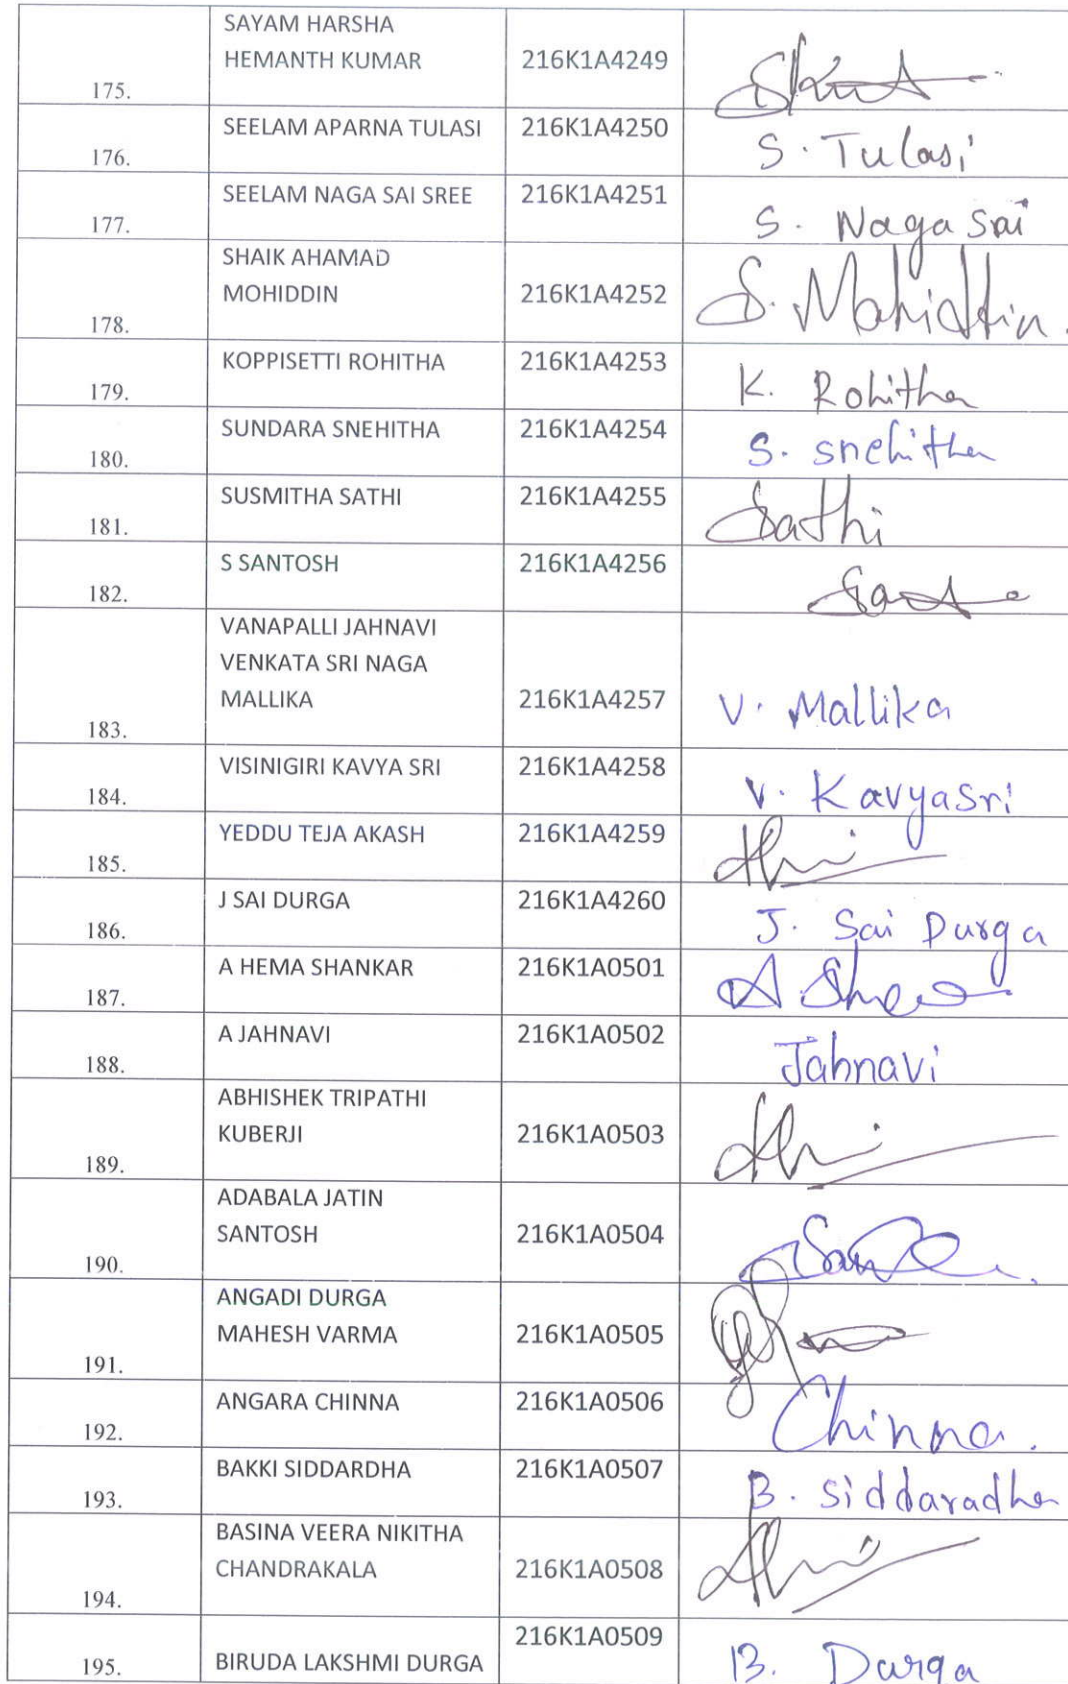 SAYAM HARSHA
HEMANTH KUMAR 216K1A4249
175.
SEELAM APARNA TULASI 216K1A4250
176. S. Tulasi
SEELAM NAGA SAI SREE 216K1A4251
177. S. Naga Sai
SHAIK AHAMAD
MOHIDDIN 216K1A4252 S. Mohiddin.
178.
KOPPISETTI ROHITHA 216K1A4253
179. K. Rohitha
SUNDARA SNEHITHA 216K1A4254
180. S. snehitha
SUSMITHA SATHI 216K1A4255
181. Sathi
S SANTOSH 216K1A4256
182.
VANAPALLI JAHNAVI
VENKATA SRI NAGA
MALLIKA 216K1A4257 V. Mallika
183.
VISINIGIRI KAVYA SRI 216K1A4258
184. V. KavyaSri
YEDDU TEJA AKASH 216K1A4259
185.
J SAI DURGA 216K1A4260
186. J. Sai Durga
A HEMA SHANKAR 216K1A0501
187.
A JAHNAVI 216K1A0502
188. Jahnavi
ABHISHEK TRIPATHI
KUBERJI 216K1A0503
189.
ADABALA JATIN
SANTOSH 216K1A0504
190.
ANGADI DURGA
MAHESH VARMA 216K1A0505
191.
ANGARA CHINNA 216K1A0506
192. Chinna.
BAKKI SIDDARDHA 216K1A0507
193. B. siddaradha
BASINA VEERA NIKITHA
CHANDRAKALA 216K1A0508
194.
216K1A0509
195. BIRUDA LAKSHMI DURGA B. Durga